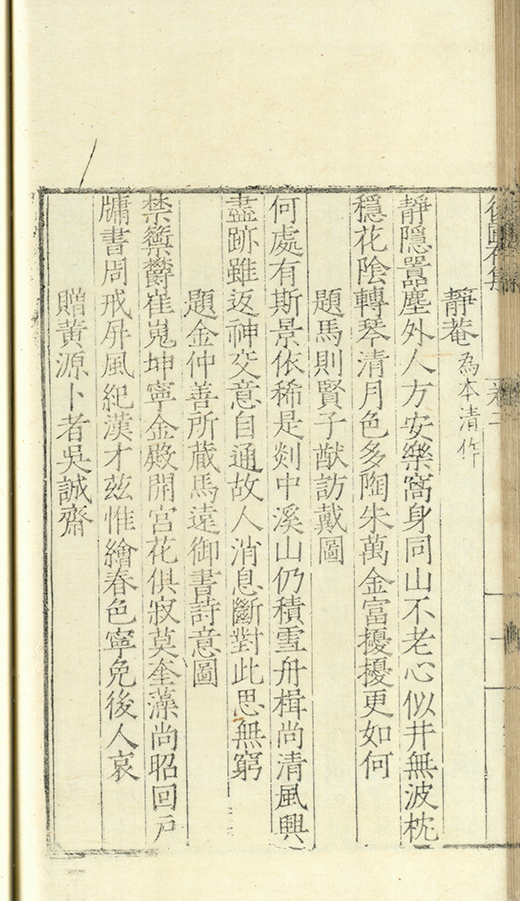 靜菴為本清作
靜隱囂塵外人方安樂窩身同山不老心似井無波枕
穩花陰轉琴清月色多陶朱萬金富擾擾更如何
題馬則賢子猷訪戴圖
何處有斯景依稀是剡中溪山仍積雪舟楫尚清風興
盡跡雖返神交意自通故人消息斷對此思無窮
題金仲善所藏馬遠御書詩意圖
禁籞欝崔嵬坤寧金殿開宮花俱寂莫奎藻尚昭回戶
牖書周戒屏風紀漢才玆惟繪春色寧免後人哀
贈黃源卜者吳誠齋